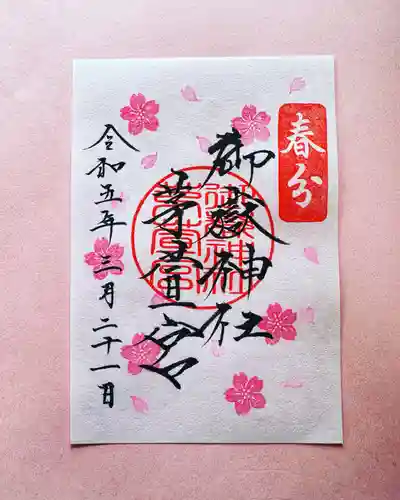 春分
御嶽神社
茅萱宮
令和五年三月二十一日